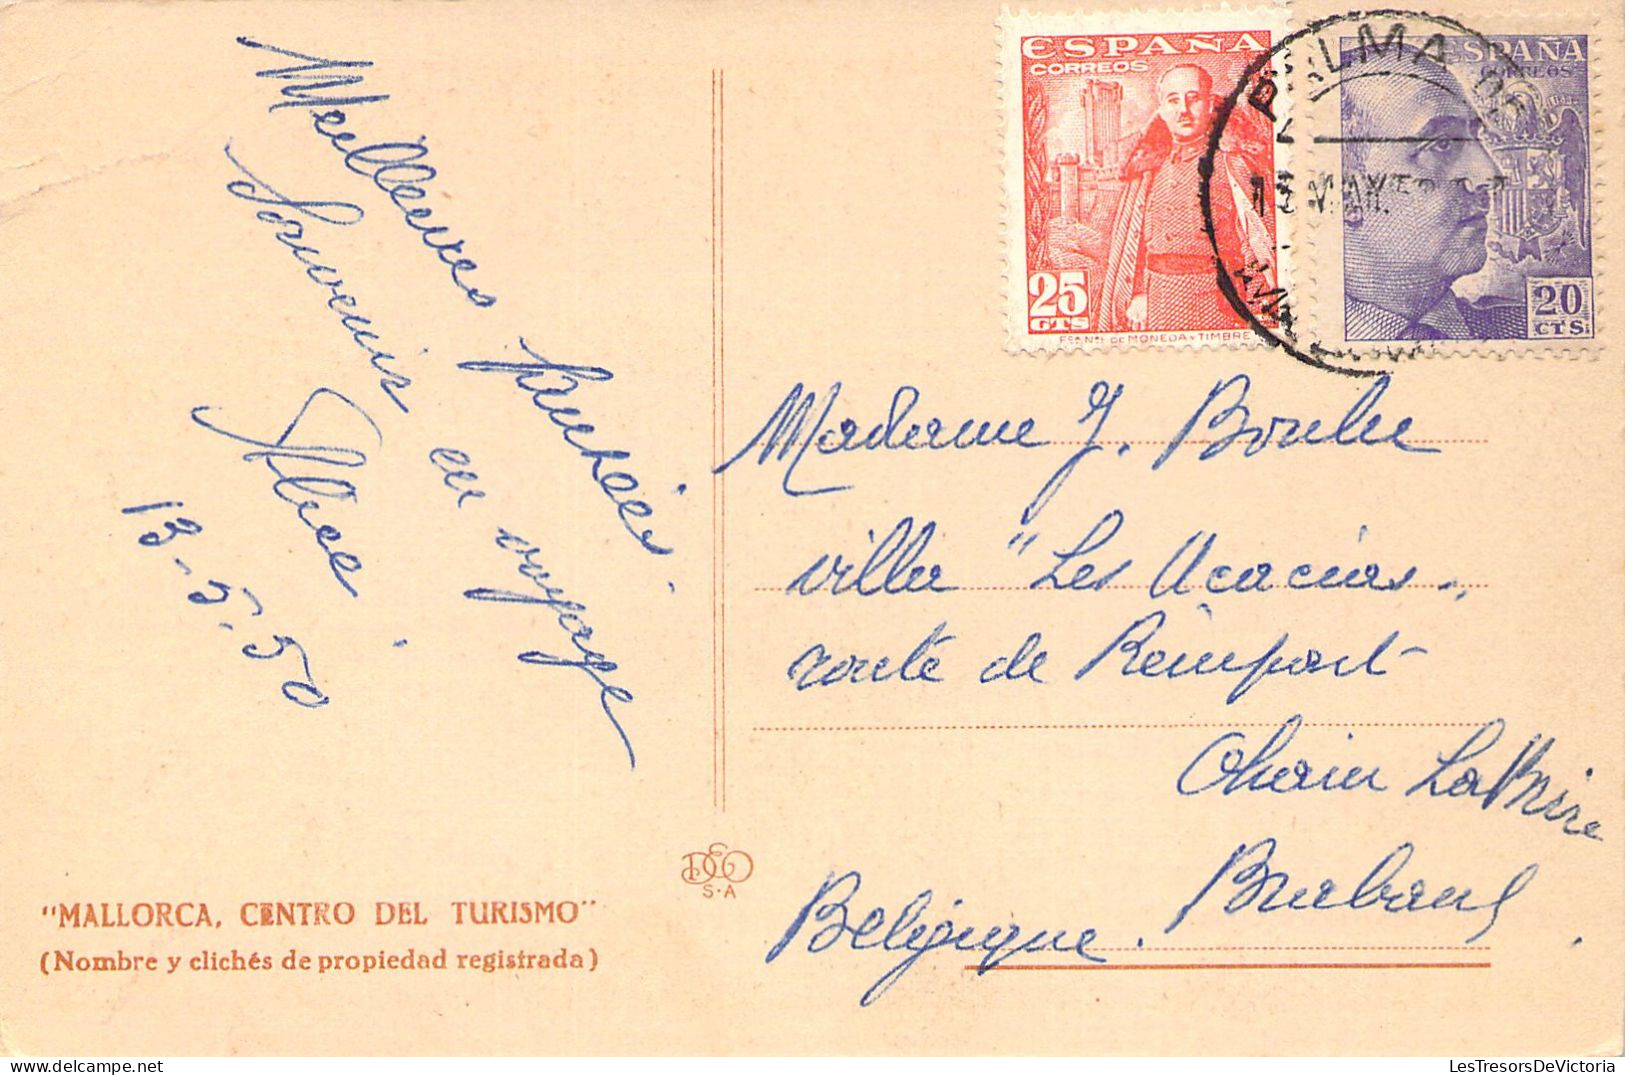 Meilleures pensées.
Souvenir en voyage
Alice.
13-5-50
"MALLORCA, CENTRO DEL TURISMO"
(Nombre y clichés de propiedad registrada)
DEO
S.A
ESPAÑA
CORREOS
25
CTS
DE MONEDA Y TIMBRE
ESPAÑA
CORREOS
20
CTS
PALMA DE
MAY 50
Madame J. Boulu
villa "Les Acacias"
route de Renipont
Ohain La
Brabant.
Belgique.
LesTresorsDeVictoria